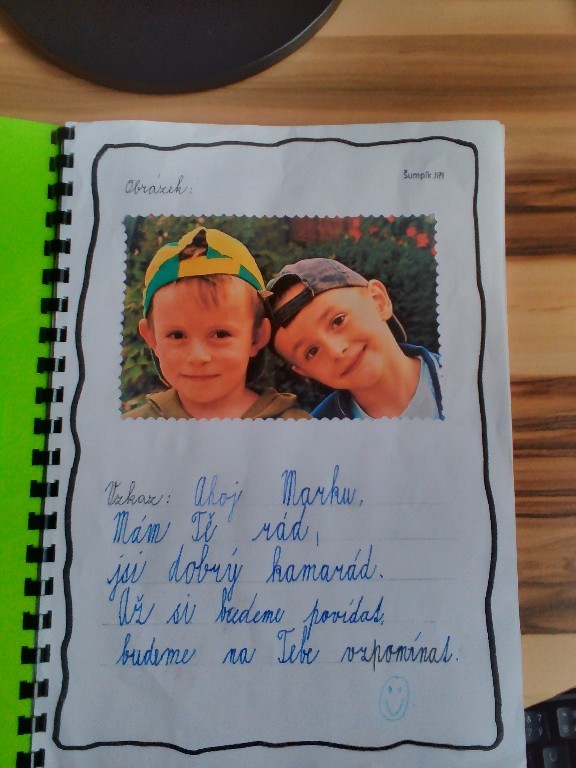 Šumpík Jiří
Obrázek:
Vzkaz: Ahoj Marku,
Mám Tě rád,
jsi dobrý kamarád.
Až si budeme povídat,
budeme na Tebe vzpomínat.